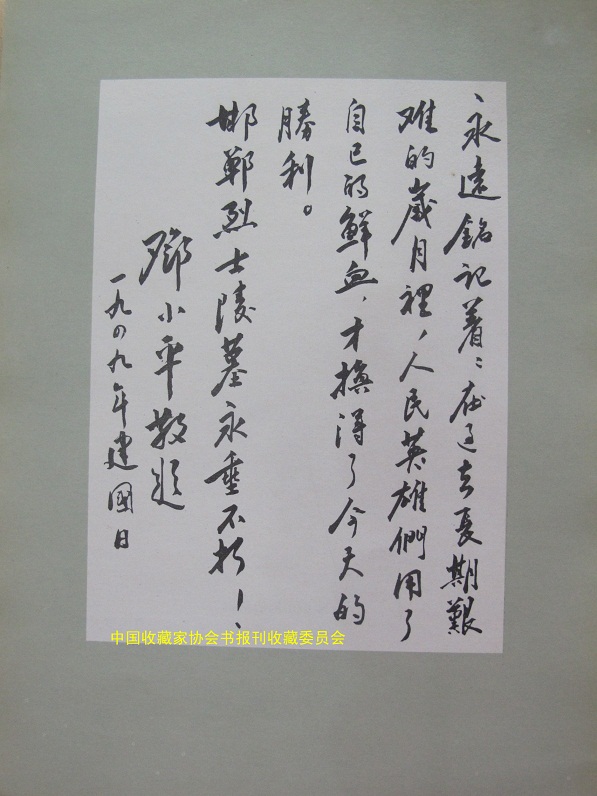 永遠銘記着：在过去長期艱
难的歲月裡，人民英雄們用了
自己的鮮血，才換得了今天的
勝利。
邯鄲烈士陵墓永垂不朽！
鄧小平敬題
一九四九年建國日
中国收藏家协会书报刊收藏委员会